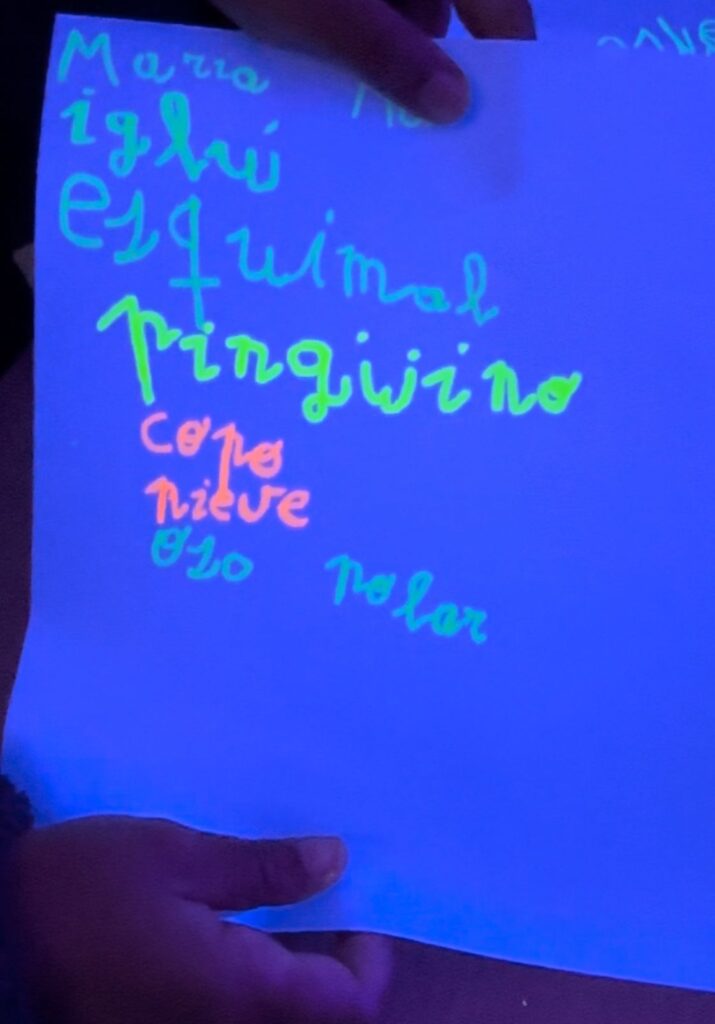 Maria
iglú
esquimal
pingüino
copo
nieve
oso polar